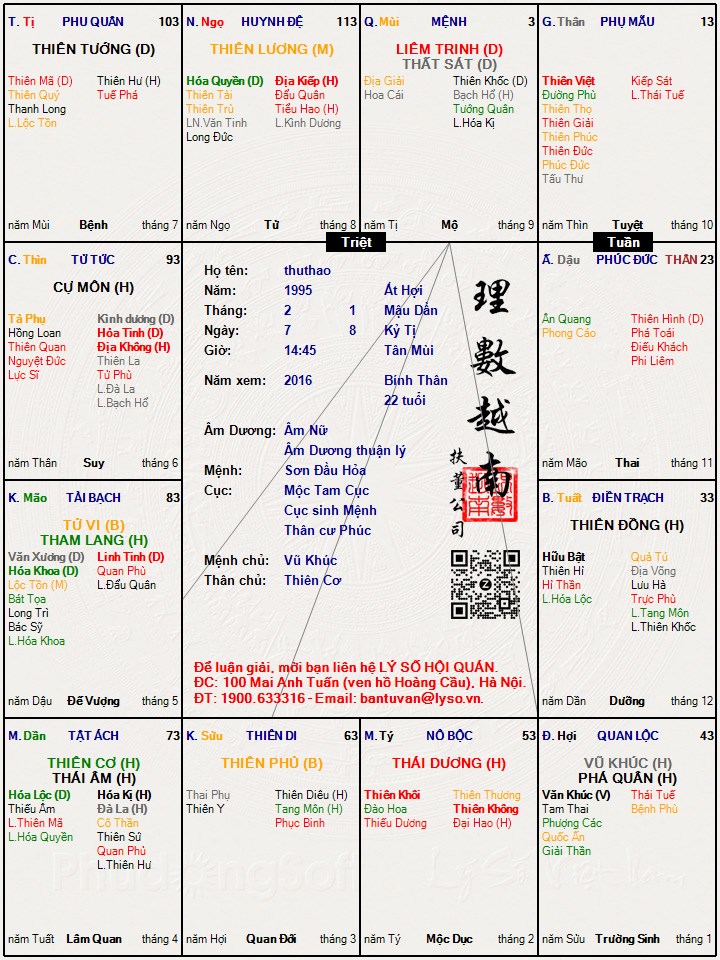 T. Tị PHU QUÂN 103
THIÊN TƯỚNG (D)
Thiên Mã (D) Thiên Hư (H)
Thiên Quý Tuế Phá
Thanh Long
L.Lộc Tồn
năm Mùi Bệnh tháng 7
N. Ngọ HUYNH ĐỆ 113
THIÊN LƯƠNG (M)
Hóa Quyền (D) Địa Kiếp (H)
Thiên Tài Đẩu Quân
Thiên Trù Tiểu Hao (H)
LN.Văn Tinh L.Kình Dương
Long Đức
năm Ngọ Tử tháng 8
Q. Mùi MỆNH 3
LIÊM TRINH (D)
THẤT SÁT (D)
Địa Giải Thiên Khốc (D)
Hoa Cái Bạch Hổ (H)
Tướng Quân
L.Hóa Kị
năm Tị Mộ tháng 9
G. Thân PHỤ MẪU 13
Thiên Việt Kiếp Sát
Đường Phù L.Thái Tuế
Thiên Thọ
Thiên Giải
Thiên Phúc
Thiên Đức
Phúc Đức
Tấu Thư
năm Thìn Tuyệt tháng 10
Triệt
Tuần
C. Thìn TỬ TỨC 93
CỰ MÔN (H)
Tả Phụ Kình dương (D)
Hồng Loan Hỏa Tinh (D)
Thiên Quan Địa Không (H)
Nguyệt Đức Thiên La
Lực Sĩ Tử Phù
L.Đà La
L.Bạch Hổ
năm Thân Suy tháng 6
Họ tên: thuthao
Năm: 1995 Ất Hợi
Tháng: 2 1 Mậu Dần
Ngày: 7 8 Kỷ Tị
Giờ: 14:45 Tân Mùi
Năm xem: 2016 Bính Thân
22 tuổi
Âm Dương: Âm Nữ
Âm Dương thuận lý
Mệnh: Sơn Đầu Hỏa
Cục: Mộc Tam Cục
Cục sinh Mệnh
Thân cư Phúc
Mệnh chủ: Vũ Khúc
Thân chủ: Thiên Cơ
理數越南
扶董公司
Để luận giải, mời bạn liên hệ LÝ SỐ HỘI QUÁN.
ĐC: 100 Mai Anh Tuấn (ven hồ Hoàng Cầu), Hà Nội.
ĐT: 1900.633316 - Email: bantuvan@lyso.vn.
Ấ. Dậu PHÚC ĐỨC THÂN 23
Ân Quang Thiên Hình (D)
Phong Cáo Phá Toái
Điếu Khách
Phi Liêm
năm Mão Thai tháng 11
K. Mão TÀI BẠCH 83
TỬ VI (B)
THAM LANG (H)
Văn Xương (D) Linh Tinh (D)
Hóa Khoa (D) Quan Phù
Lộc Tồn (M) L.Đẩu Quân
Bát Tọa
Long Trì
Bác Sỹ
L.Hóa Khoa
năm Dậu Đế Vượng tháng 5
B. Tuất ĐIỀN TRẠCH 33
THIÊN ĐỒNG (H)
Hữu Bật Quả Tú
Thiên Hỉ Địa Võng
Hỉ Thần Lưu Hà
L.Hóa Lộc Trực Phù
L.Tang Môn
L.Thiên Khốc
năm Dần Dưỡng tháng 12
M. Dần TẬT ÁCH 73
THIÊN CƠ (H)
THÁI ÂM (H)
Hóa Lộc (D) Hóa Kị (H)
Thiếu Âm Đà La (H)
L.Thiên Mã Cô Thần
L.Hóa Quyền Thiên Sứ
Quan Phủ
L.Thiên Hư
năm Tuất Lâm Quan tháng 4
K. Sửu THIÊN DI 63
THIÊN PHỦ (B)
Thai Phụ Thiên Diêu (H)
Thiên Y Tang Môn (H)
Phục Binh
năm Hợi Quan Đới tháng 3
M. Tý NÔ BỘC 53
THÁI DƯƠNG (H)
Thiên Khôi Thiên Thương
Đào Hoa Thiên Không
Thiếu Dương Đại Hao (H)
năm Tý Mộc Dục tháng 2
Đ. Hợi QUAN LỘC 43
VŨ KHÚC (H)
PHÁ QUÂN (H)
Văn Khúc (V) Thái Tuế
Tam Thai Bệnh Phù
Phượng Các
Quốc Ấn
Giải Thần
năm Sửu Trường Sinh tháng 1